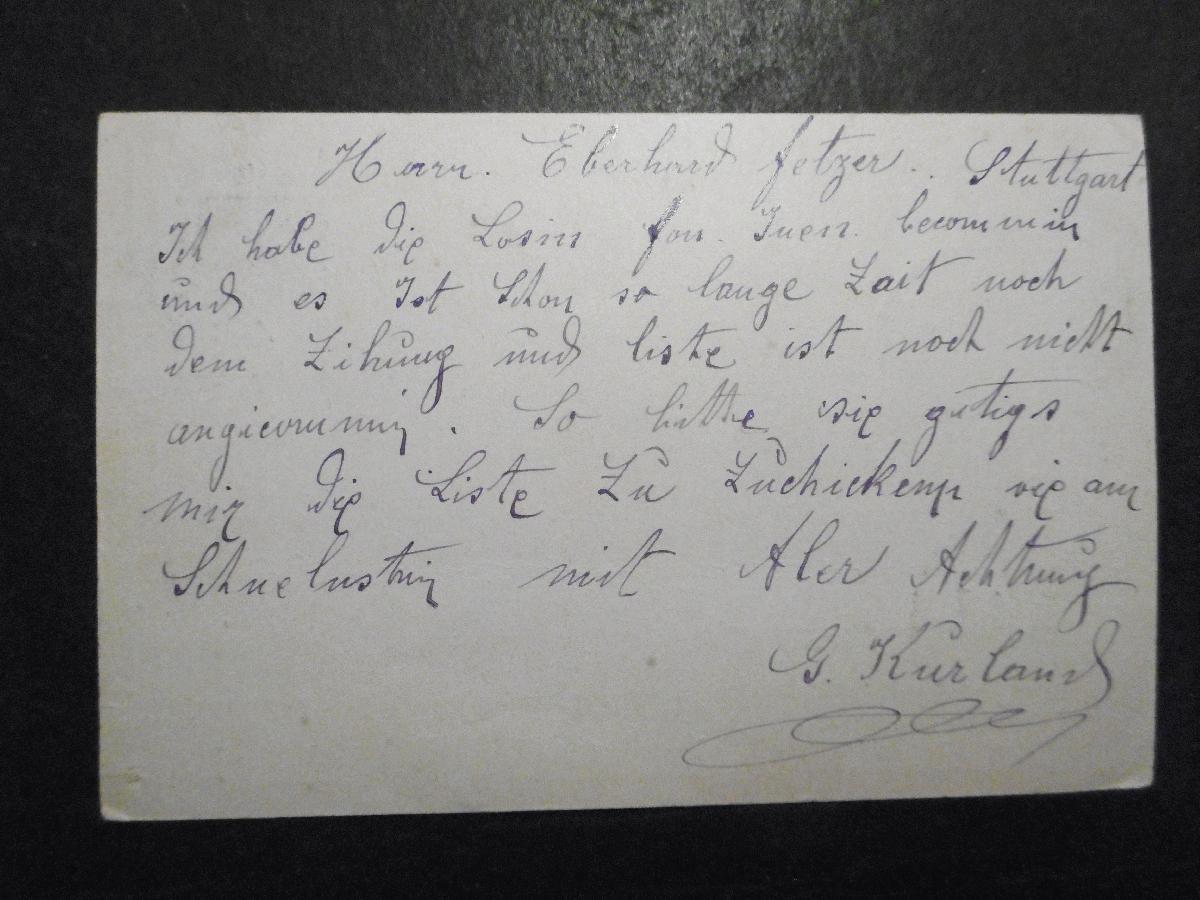 Herrn. Eberhard fetzer.. Stuttgart
Ich habe die Losin fon Inen. becommin
und es Ist Schon so lange Zait noch
dem Zihung und liste ist noch nicht
angicommin. So bitte sie gutigs
mir die Liste Zu Zuchickenn vie am
Schnelustin mit Aler Achtung
G. Kurland